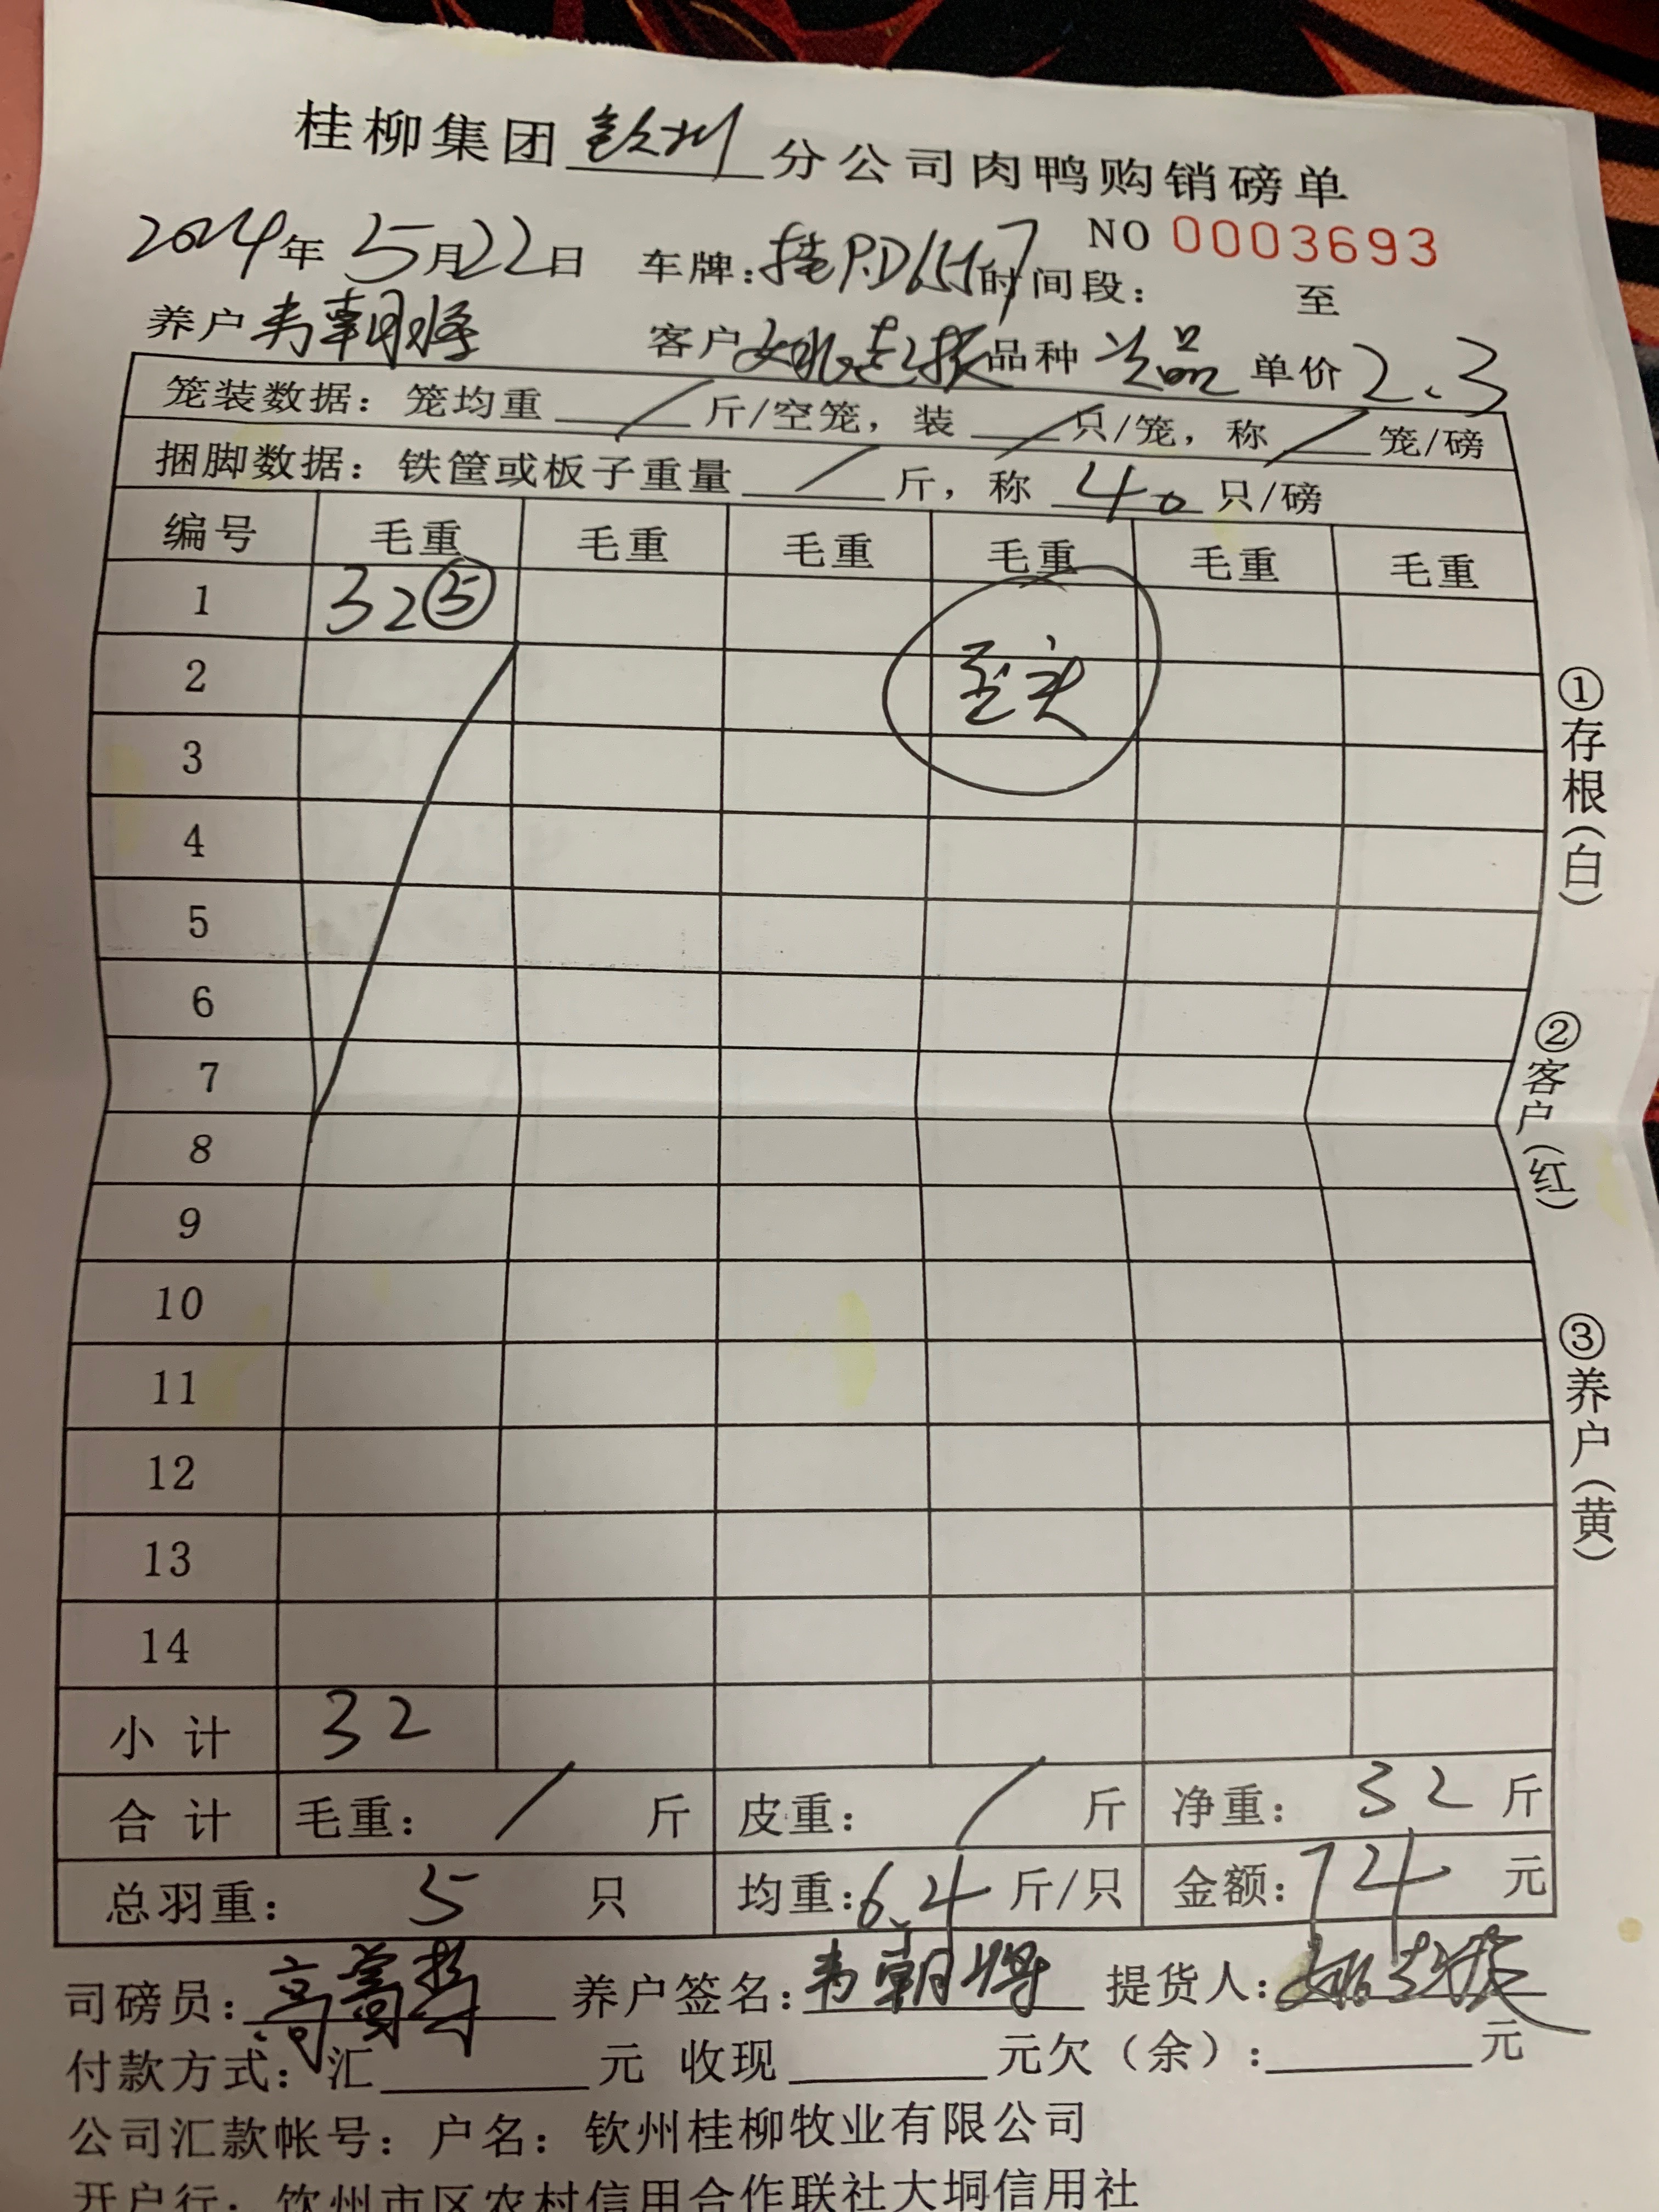 桂柳集团钦州分公司肉鸭购销磅单
NO 0003693
2024年5月22日 车牌: 时间段: 至
养户韦朝将 客户 品种 次品 单价2.3
笼装数据:笼均重 / 斤/空笼,装 / 只/笼,称 / 笼/磅
捆脚数据:铁筐或板子重量 / 斤,称 40 只/磅
编号 毛重 毛重 毛重 毛重 毛重 毛重
1 32⑤
2
3
4
5
6
7
8
9
10
11
12
13
14
小计 32
合计 毛重: / 斤 皮重: / 斤 净重: 32 斤
总羽重: 5 只 均重:6.4斤/只 金额:74元
司磅员: 养户签名:韦朝将 提货人:
付款方式:汇 元 收现 元欠(余): 元
公司汇款帐号:户名:钦州桂柳牧业有限公司
开户行:钦州市区农村信用合作联社大垌信用社
①存根(白)
②客户(红)
③养户(黄)